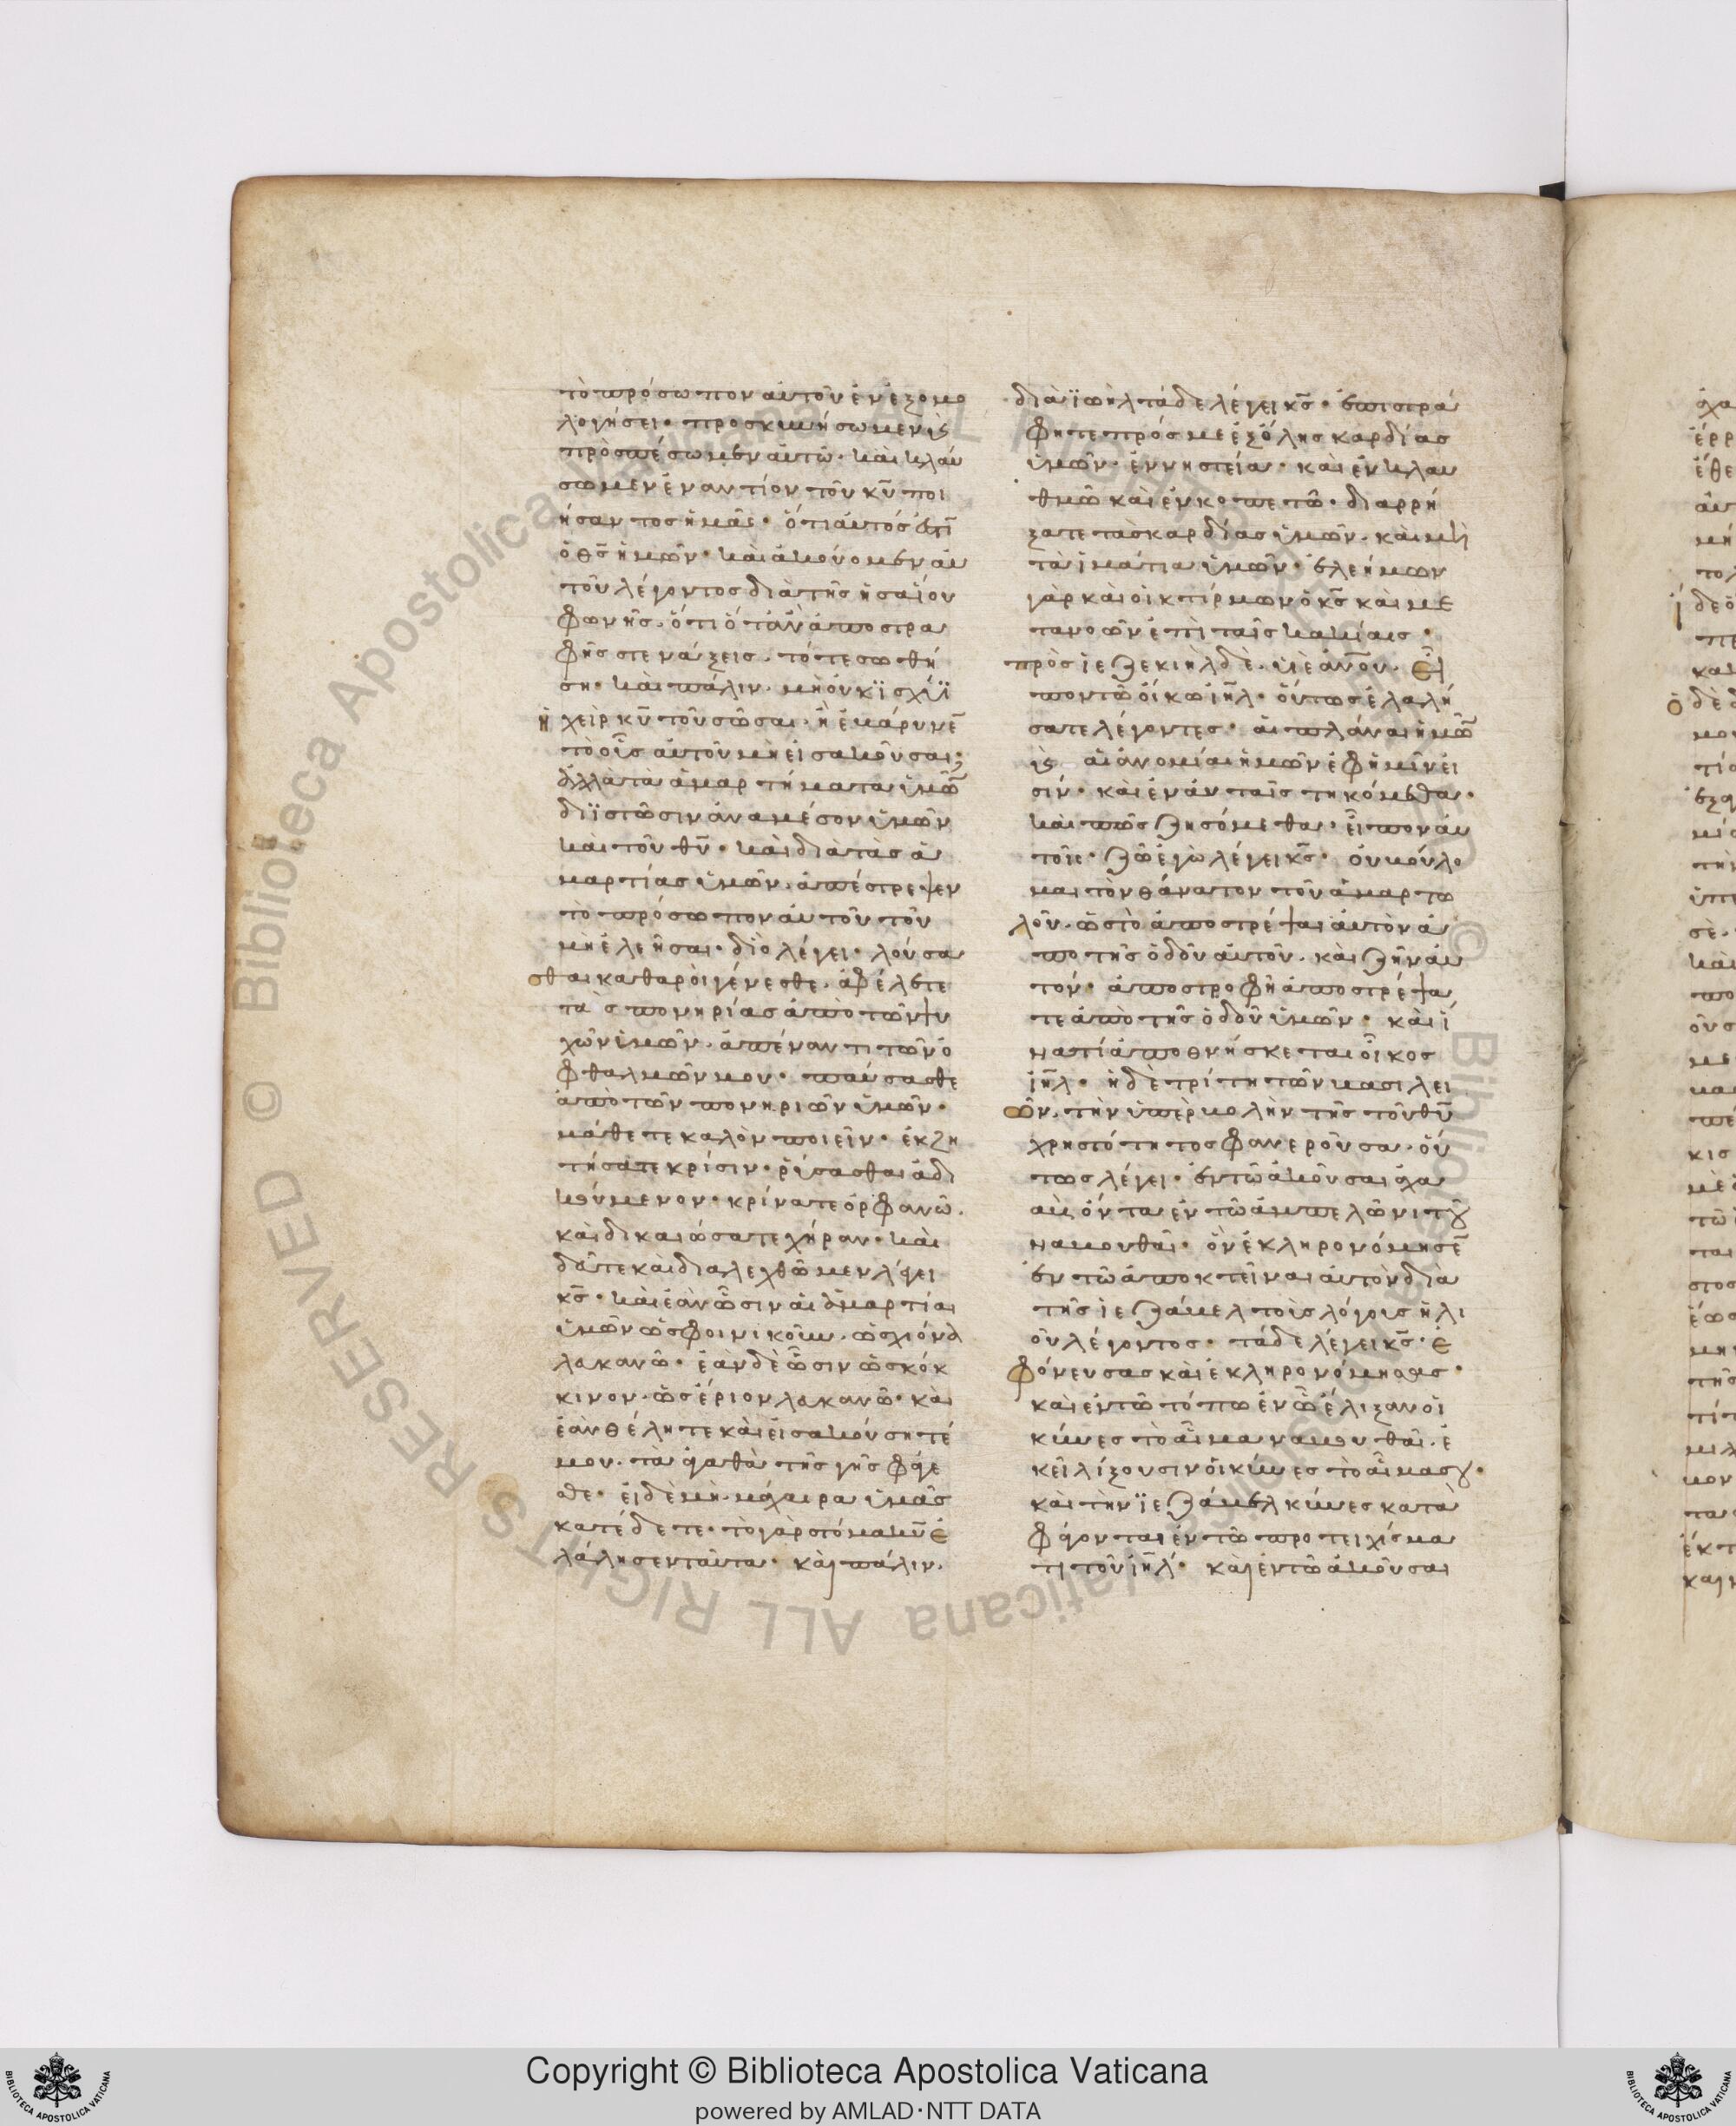 τὸ πρόσωπον αὐτοῦ ἐν ἐξομο
λογήσει· προσκυνήσωμεν κ(αὶ)
προσπέσωμεν αὐτῷ· καὶ κλαύ
σωμεν ἐναντίον τοῦ κ̅υ̅ ποι
ήσαντος ἡμᾶς· ὅτι αὐτός ἐστ̅ι̅
ὁ θ̅ς̅ ἡμῶν· καὶ ἀκούομεν αὐ
τοῦ λέγοντος διὰ τῆς ἡσαΐου
φωνῆς· ὅτι ὅταν ἀποστρα
φῇς στενάξεις· τότε σωθή
ση· καὶ πάλιν· μὴ οὐκ ἰσχύϊ
ἡ χεὶρ κ̅υ̅ τοῦ σῶσαι· ἢ ἐβάρυνε̅
τὸ οὖς αὐτοῦ μὴ εἰσακοῦσαι;
ἀλλὰ τὰ ἁμαρτήματα ὑμῶ̅
διϊστῶσιν ἀναμέσον ὑμῶν
καὶ τοῦ θ̅υ̅· καὶ διὰ τὰς ἁ
μαρτίας ὑμῶν· ἀπέστρεψεν
τὸ πρόσωπον αὐτοῦ τοῦ
μὴ ἐλεῆσαι· διὸ λέγει· λούσα
σθαι καθαροὶ γένεσθε· ἀφέλετε
τὰς πονηρίας ἀπὸ τῶν ψυ
χῶν ὑμῶν· ἀπέναντι τῶν ὀ
φθαλμῶν μου· παύσασθε
ἀπὸ τῶν πονηριῶν ὑμῶν·
μάθετε καλὸν ποιεῖν· ἐκζη
τήσατε κρίσιν· ῥύσασθαι ἀδι
κούμενον· κρίνατε ὀρφανῶ·
καὶ δικαιώσατε χήραν· καὶ
δεῦτε καὶ διαλεχθῶμεν λέγει
κ̅ς̅· καὶ ἐὰν ὦσιν αἱ ἁμαρτίαι
ὑμῶν ὡς φοινικοῦν· ὡς χιόνα
λευκανῶ· ἐὰν δὲ ὦσιν ὡς κόκ
κινον· ὡς ἔριον λευκανῶ· καὶ
ἐὰν θέλητε καὶ εἰσακούσητέ
μου· τὰ ἀγαθὰ τῆς γῆς φάγε
σθε· εἰ δὲ μὴ· μάχαιρα ὑμᾶς
κατέδετε· τὸ γὰρ στόμα κ̅υ̅ ἐ
λάλησεν ταῦτα· καὶ πάλιν·
διὰ ἰωὴλ τάδε λέγει κ̅ς̅· ἐπιστρά
φητε πρός με ἐξ ὅλης καρδίας
ὑμῶν· ἐν νηστεία· καὶ ἐν κλαυ
θμῶ καὶ ἐν κοπετῶ· διαρρή
ξατε τὰς καρδίας ὑμῶν· καὶ μὴ
τὰ ἱμάτια ὑμῶν· ἐλεήμων
γὰρ καὶ οἰκτίρμων ὁ κ̅ς̅ καὶ με
τανοῶν ἐπὶ ταῖς κακίαις·
πρὸς ἰεζεκιὴλ δὲ· υἱὲ ἀν̅ο̅υ̅· εἶ
πον τῶ οἴκω ἰ̅η̅λ̅· οὕτως ἐλαλή
σατε λέγοντες· αἱ πλάναι ἡμῶ̅
κ(αὶ) αἱ ἀνομίαι ἡμῶν ἐφ ἡμῖν εἰ
σίν· καὶ ἐν αὐταῖς τηκόμεθα·
καὶ πῶς ζησόμεθα· εἶπον αὐ
τοῖς· ζῶ ἐγὼ λέγει κ̅ς̅· οὐ βούλο
μαι τὸν θάνατον τοῦ ἁμαρτω
λοῦ· ὡς τὸ ἀποστρέψαι αὐτὸν ἀ
πὸ τῆς ὁδοῦ αὐτοῦ· καὶ ζῆν αὐ
τόν· ἀποστροφῆ ἀποστρέψα
τε ἀπὸ τῆς ὁδοῦ ὑμῶν· καὶ ἵ
νατί ἀποθνήσκεται οἶκος
ἰ̅η̅λ̅· ἡ δὲ τρίτη τῶν βασιλει
ῶν· τὴν ὑπερβολὴν τῆς τοῦ θ̅υ̅
χρηστότητος φανεροῦσα· οὕ
τως λέγει· ἐν τῶ ἀκοῦσαι ἀχα
αὺ ὄντα ἐν τῶ ἀμπελῶνι τοῦ
ναβουθαὶ· ὃν ἐκληρονόμησε̅
ἐν τῶ ἀποκτεῖναι αὐτὸν διὰ
τῆς ἰεζάβελ τοῖς λόγοις ἡλι
οῦ λέγοντος· τάδε λέγει κ̅ς̅· ἐ
φόνευσας καὶ ἐκληρονόμησας·
καὶ ἐν τῶ τόπω ἐν ὧ ἔλιξαν οἱ
κύνες τὸ αἷμα ναβουθαῖ· ἐ
κεῖ λίξουσιν οἱ κύνες τὸ αἷμα σου·
καὶ τὴν ἰεζάβελ κύνες κατα
φάγονται ἐν τῶ προτειχίσμα
τι τοῦ ἰ̅η̅λ̅· καὶ ἐν τῶ ἀκοῦσαι
Copyright © Biblioteca Apostolica Vaticana
powered by AMLAD·NTT DATA